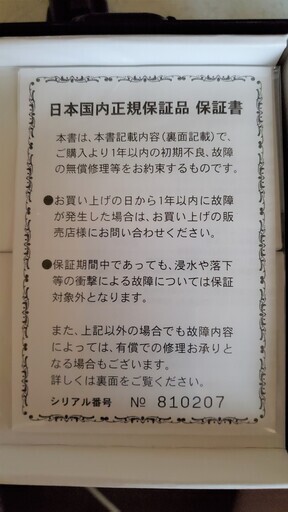 日本国内正規保証品 保証書
本書は、本書記載内容(裏面記載)で、
ご購入より1年以内の初期不良、故障
の無償修理等をお約束するものです。
●お買い上げの日から1年以内に故障
が発生した場合は、お買い上げの販
売店様にお問い合わせください。
●保証期間中であっても、浸水や落下
等の衝撃による故障については保証
対象外となります。
また、上記以外の場合でも故障内容
によっては、有償での修理お承りと
なる場合もございます。
詳しくは裏面をご覧ください。
シリアル番号 № 810207